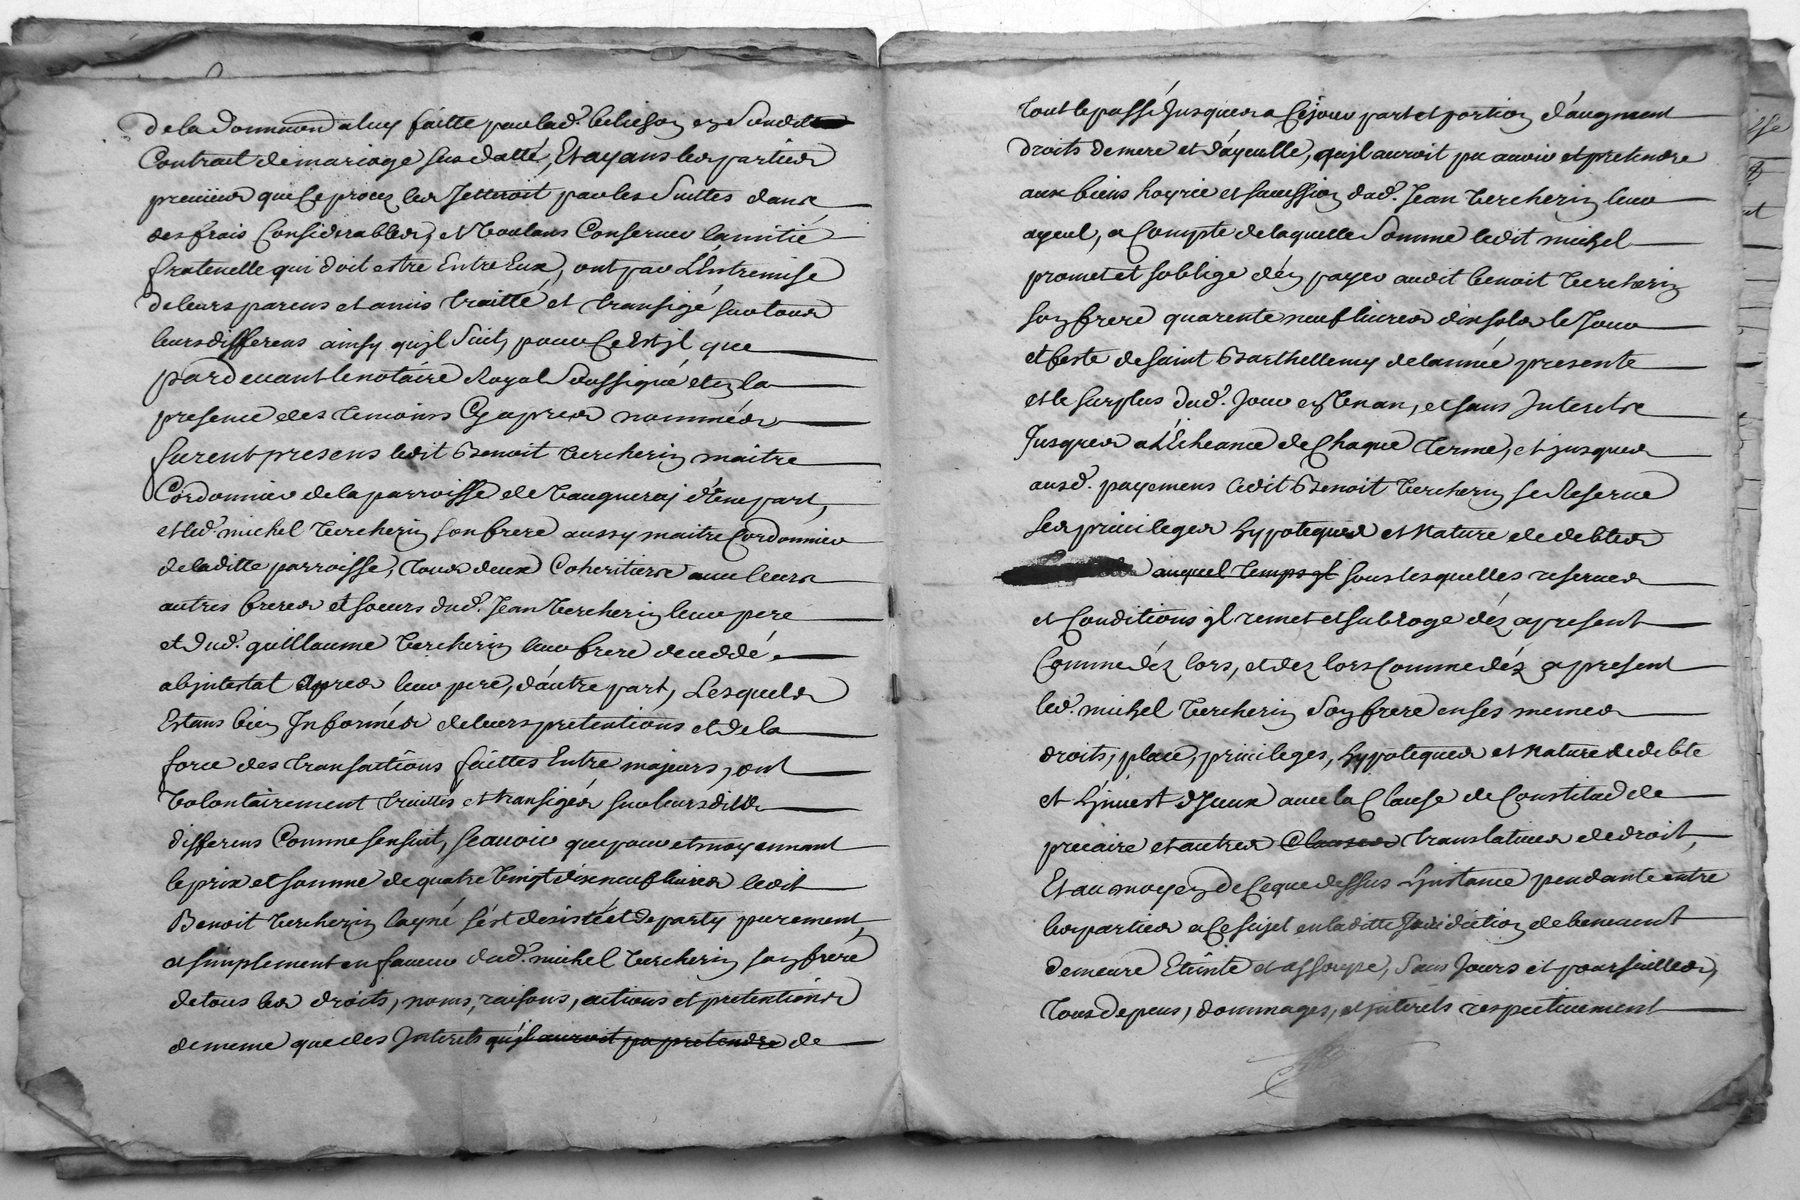 de la donnaon a luy faitte par lad.e belieson en Sondit
Contrait de mariage sus datté, Et ayans les parties
preuües que Ce procez les Jetteroit par les Suittes dans
des frais Considerables, et Voulans Conserver lamitié
fraternelle qui doit estre Entre Eux, ont par L'Entremise
de leurs parens et amis traitté et transigé sur tous
leurs differens ainsy quil Suit, pour Ce Est jl que
pardevant le notaire Royal Soussigné et en la
presence des temoins Cy apres nommés
furent presens ledit Benoit Vercherin maitre
Cordonnier de la parroisse de Vaugneraj d'Une part,
et led.t michel Vercherin son frere aussy maitre Cordonnier
de laditte parroisse, tous deux Coheritiers avec leurs
autres freres et soeurs dud.t Jean Vercherin leur pere
et dud.t guillaume Vercherin leur frere deceddé
abjntestat apres leur pere, d'autre part, Lesquels
Estans bien Jnformés de leurs pretentions et de la
force des transactions faittes Entre majeurs, ont
Volontairement traittés et transigés sur leurs dits
differens Comme sensuit, scauoir que pour et moyennant
le prix et somme de quatre Vingt dix neuf liures ledit
Benoit Vercherin layné s'est desisté et departy purement
et simplement en faueur dud.t michel Vercherin son frere
de tous les droits, noms, raisons, actions et pretentions
de meme que des Jnterets qu'jl auroit pu pretendre de
tout le passé Jusques a Ce jour part et portion d'augment
droits de mere et d'ayeulle, qu'jl auroit pu auoir et pretendre
aux biens hoyrie et succession dud.t Jean Vercherin leur
ayeul, a Compte de laquelle Somme ledit michel
promet et soblige d'en payer audit benoit Vercherin
son frere quarente neuf liures dix sols le Jour
et feste de Saint Barthellemy de lannée presente
et le surplus dud.t Jour en Un an, et sans Jnterets
Jusques a L'Echeance de Chaque terme, et jusques
ausd. payemens ledit Benoit Vercherin se Reserue
ses priuileges hypoteques et Nature de debtes
auquel temps jl sous lesquelles reserues
et Conditions jl remet et subroge déz apresent
Comme déz lors, et dez lors Comme déz apresent
led.t michel Vercherin Son frere en ses memes
droits, place, priuileges, hypoteques et Nature de debte
et L'jnuest d'Jceux auec la Clause de Constitud de
precaire et autres Clauses translatiues de droit,
Et au moyen de Ce que dessus L'jnstance pendante entre
les parties a Ce sujet en laditte Juridiction de benevent
demeure Eteinte et assoupie, Sans Jours et poursuittes,
tous depens, dommages, et jnterets respectiuement